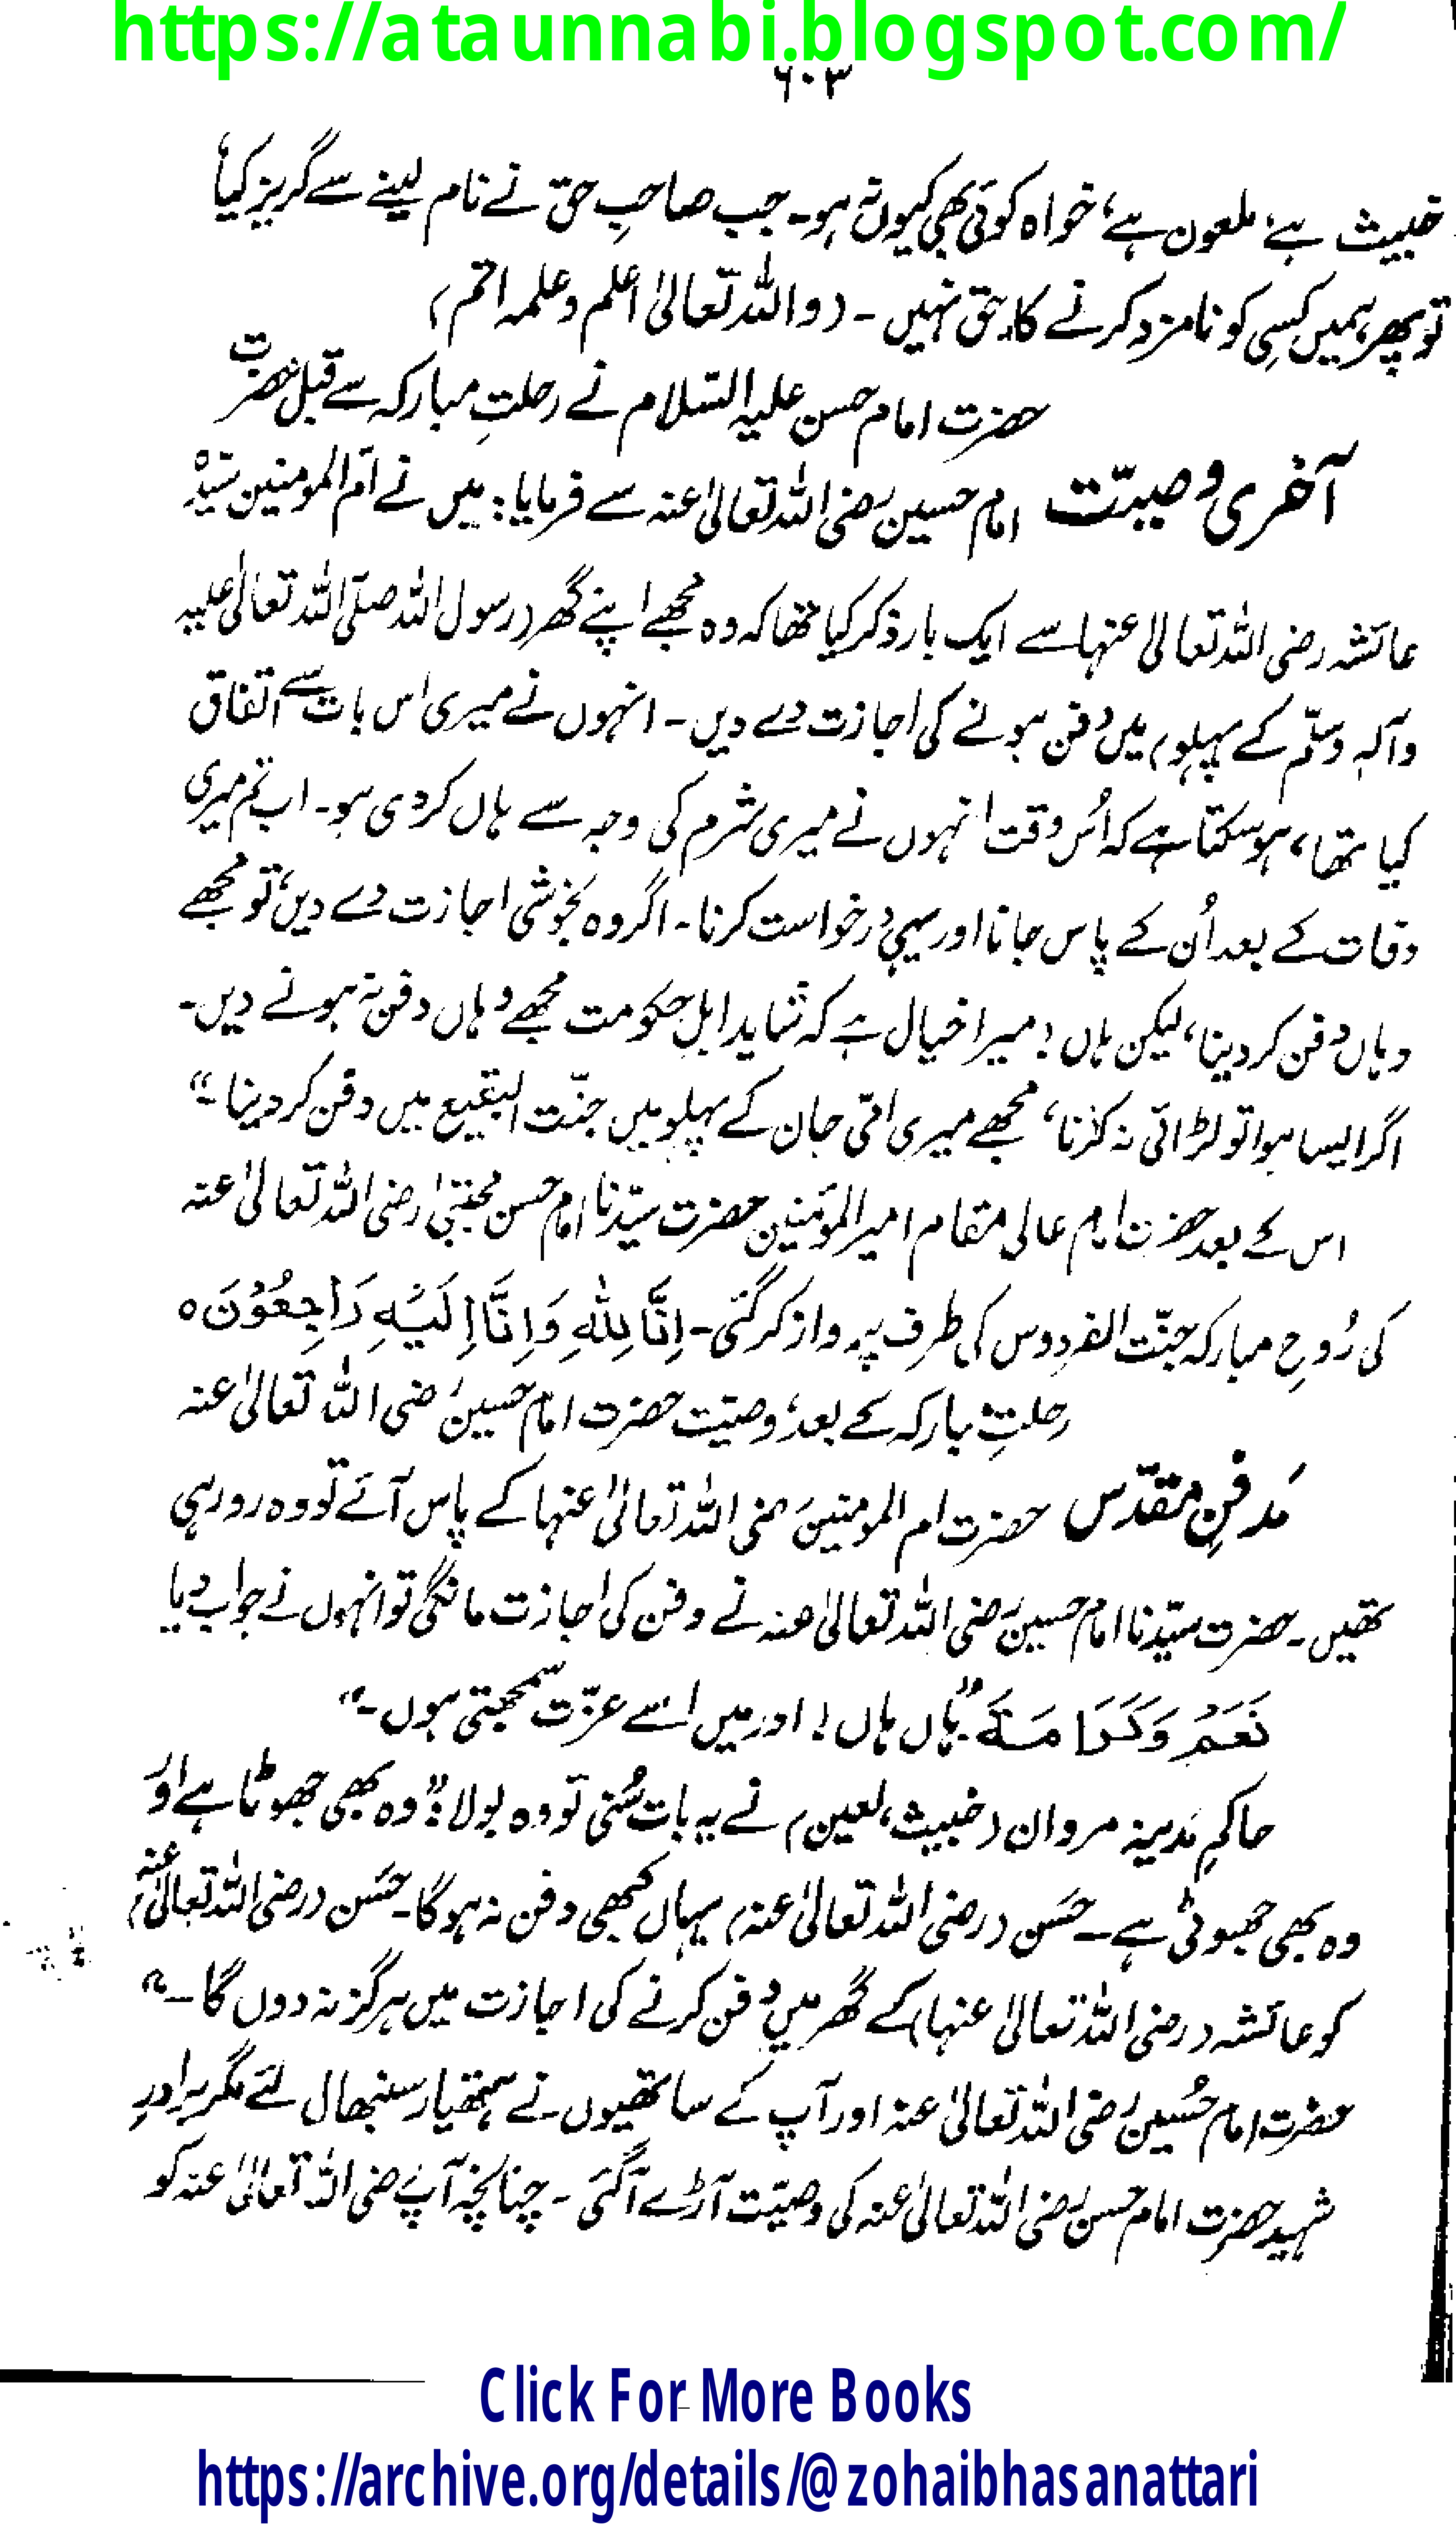 https://ataunnabi.blogspot.com/
۶۰۳
خبیث ہے، ملعون ہے، خواہ کوئی بھی کیوں نہ ہو۔ جب صاحبِ حق نے نام لینے سے گریز کیا،
تو پھر ہمیں کسِی کو نامزد کرنے کا حق نہیں ۔ (واللہ تعالیٰ اعلم وعلمہ اتم)
حضرت امام حسن علیہ السّلام نے رحلتِ مبارکہ سے قبل حضرت
آخری وصیّت امام حسین رضی اللہ تعالیٰ عنہ سے فرمایا: میں نے اُمّ المومنین سیّدہ
عائشہ رضی اللہ تعالیٰ عنہا سے ایک بار ذکر کیا تھا کہ وہ مجھے اپنے گھر (رسول اللہ صلّی اللہ تعالیٰ علیہ
وآلہٖ وسلّم کے پہلو) میں دفن ہونے کی اجازت دے دیں ۔ انہوں نے میری اس بات سے اتفاق
کیا تھا، ہوسکتا ہے کہ اُس وقت انہوں نے میری شرم کی وجہ سے ہاں کردی ہو۔ اب تم میری
وفات کے بعد اُن کے پاس جانا اور یہی درخواست کرنا۔ اگر وہ بخوشی اجازت دے دیں، تو مجھے
وہاں دفن کردینا، لیکن ہاں! میرا خیال ہے کہ شاید اہلِ حکومت مجھے وہاں دفن نہ ہونے دیں۔
اگر ایسا ہوا تو لڑائی نہ کرنا، مجھے میری امّی جان کے پہلو میں جنّت البقیع میں دفن کردینا۔“
اس کے بعد حضرت امام عالی مقام امیر المؤمنین حضرت سیّدنا امام حسن مجتبیٰ رضی اللہ تعالیٰ عنہ
کی رُوحِ مبارکہ جنّت الفردوس کی طرف پرواز کرگئی۔ اِنَّا لِلّٰہِ وَاِنَّا اِلَیْہِ رَاجِعُوْنَ ہ
رحلتِ مبارکہ کے بعد، وصیّت حضرت امام حسین رضی اللہ تعالیٰ عنہ
مَدفنِ مقدّس حضرت ام المومنین رضی اللہ تعالیٰ عنہا کے پاس آئے تو وہ رو رہی
تھیں۔ حضرت سیّدنا امام حسین رضی اللہ تعالیٰ عنہ نے دفن کی اجازت مانگی تو انہوں نے جواب دیا
نَعَمْ وَکَرَامَۃً ”ہاں ہاں! اور میں اسے عزّت سمجھتی ہوں۔“
حاکمِ مَدینہ مروان (خبیث، لعین) نے یہ بات سُنی تو وہ بولا: ”وہ بھی جھوٹا ہے اور
وہ بھی جھوٹی ہے۔ حَسَن (رضی اللہ تعالیٰ عنہ) یہاں کبھی دفن نہ ہوگا۔ حَسَن (رضی اللہ تعالیٰ عنہ)
کو عائشہ (رضی اللہ تعالیٰ عنہا) کے گھر میں دفن کرنے کی اجازت میں ہرگز نہ دوں گا۔“
حضرت امام حُسین رضی اللہ تعالیٰ عنہ اور آپ کے ساتھیوں نے ہتھیار سنبھال لئے مگر برادرِ
شہید حضرت امام حسن رضی اللہ تعالیٰ عنہ کی وصیّت آڑے آگئی ۔ چنانچہ آپ رضی اللہ تعالیٰ عنہ کو
Click For More Books
https://archive.org/details/@zohaibhasanattari